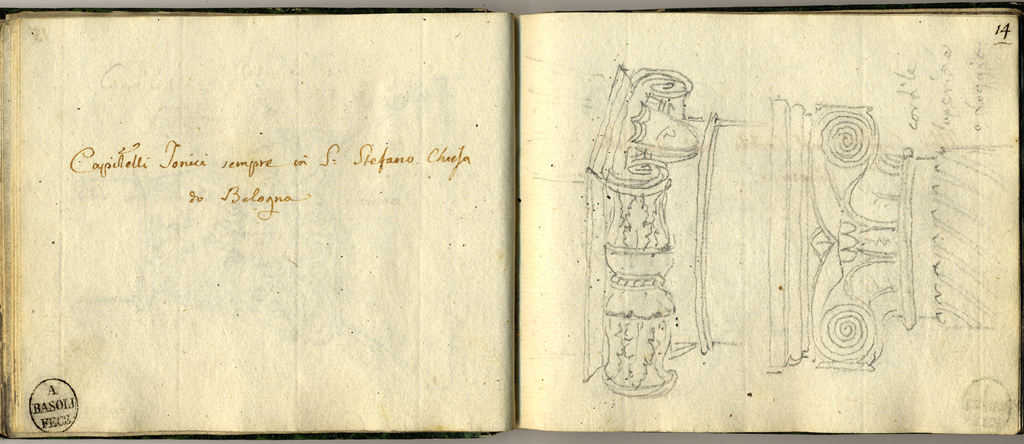 Capitelli Jonici sempre in S. Stefano Chiesa
do Bologna
A
BASOLI
FECE
14
cortile
o loggia